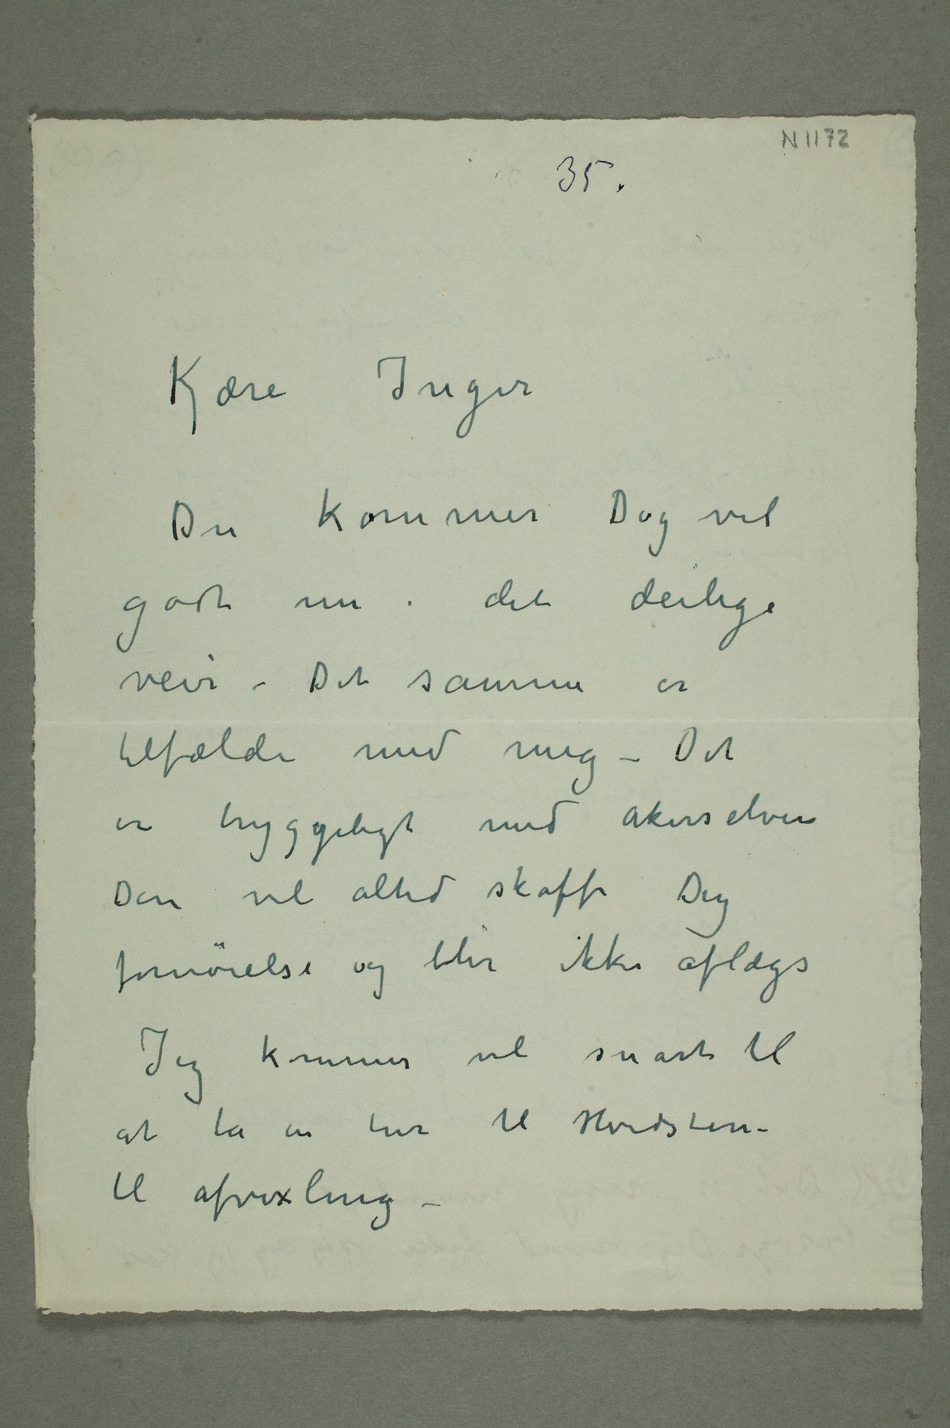 N 1172
35.
Kjære Inger
Du kommer Dog vel
godt nu i det deilige
veir – Det samme er
tilfælde med mig – Det
er hyggeligt med akerselven
Den vil altid skaffe Dig
fornöielse og blir ikke aflægs
Jeg kommer vel snart til
at ta en tur til Hvidsten –
til afvexling –